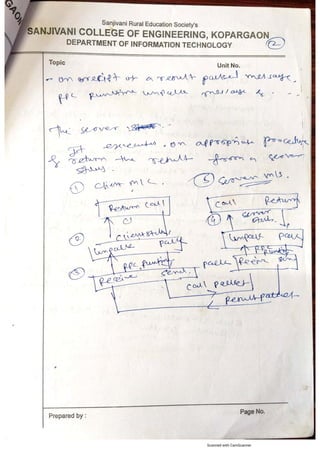 GAON
Sanjivani Rural Education Society's
SANJIVANI COLLEGE OF ENGINEERING, KOPARGAON
DEPARTMENT OF INFORMATION TECHNOLOGY
2
Topic
Unit No.
- on receipt of a result packed message.
RPC Runtime unpack message &
The server
executes on appropriate procedure
& return the result from a server
① Client M/C.
⑤ Server M/C.
Return Call
Call Return
④ Server
② Client
Unpack pack
Unpack pack
RPC Runtime
③ Receive Send
Receive
Call packet
Result packet
Prepared by :
Page No.
Scanned with CamScanner